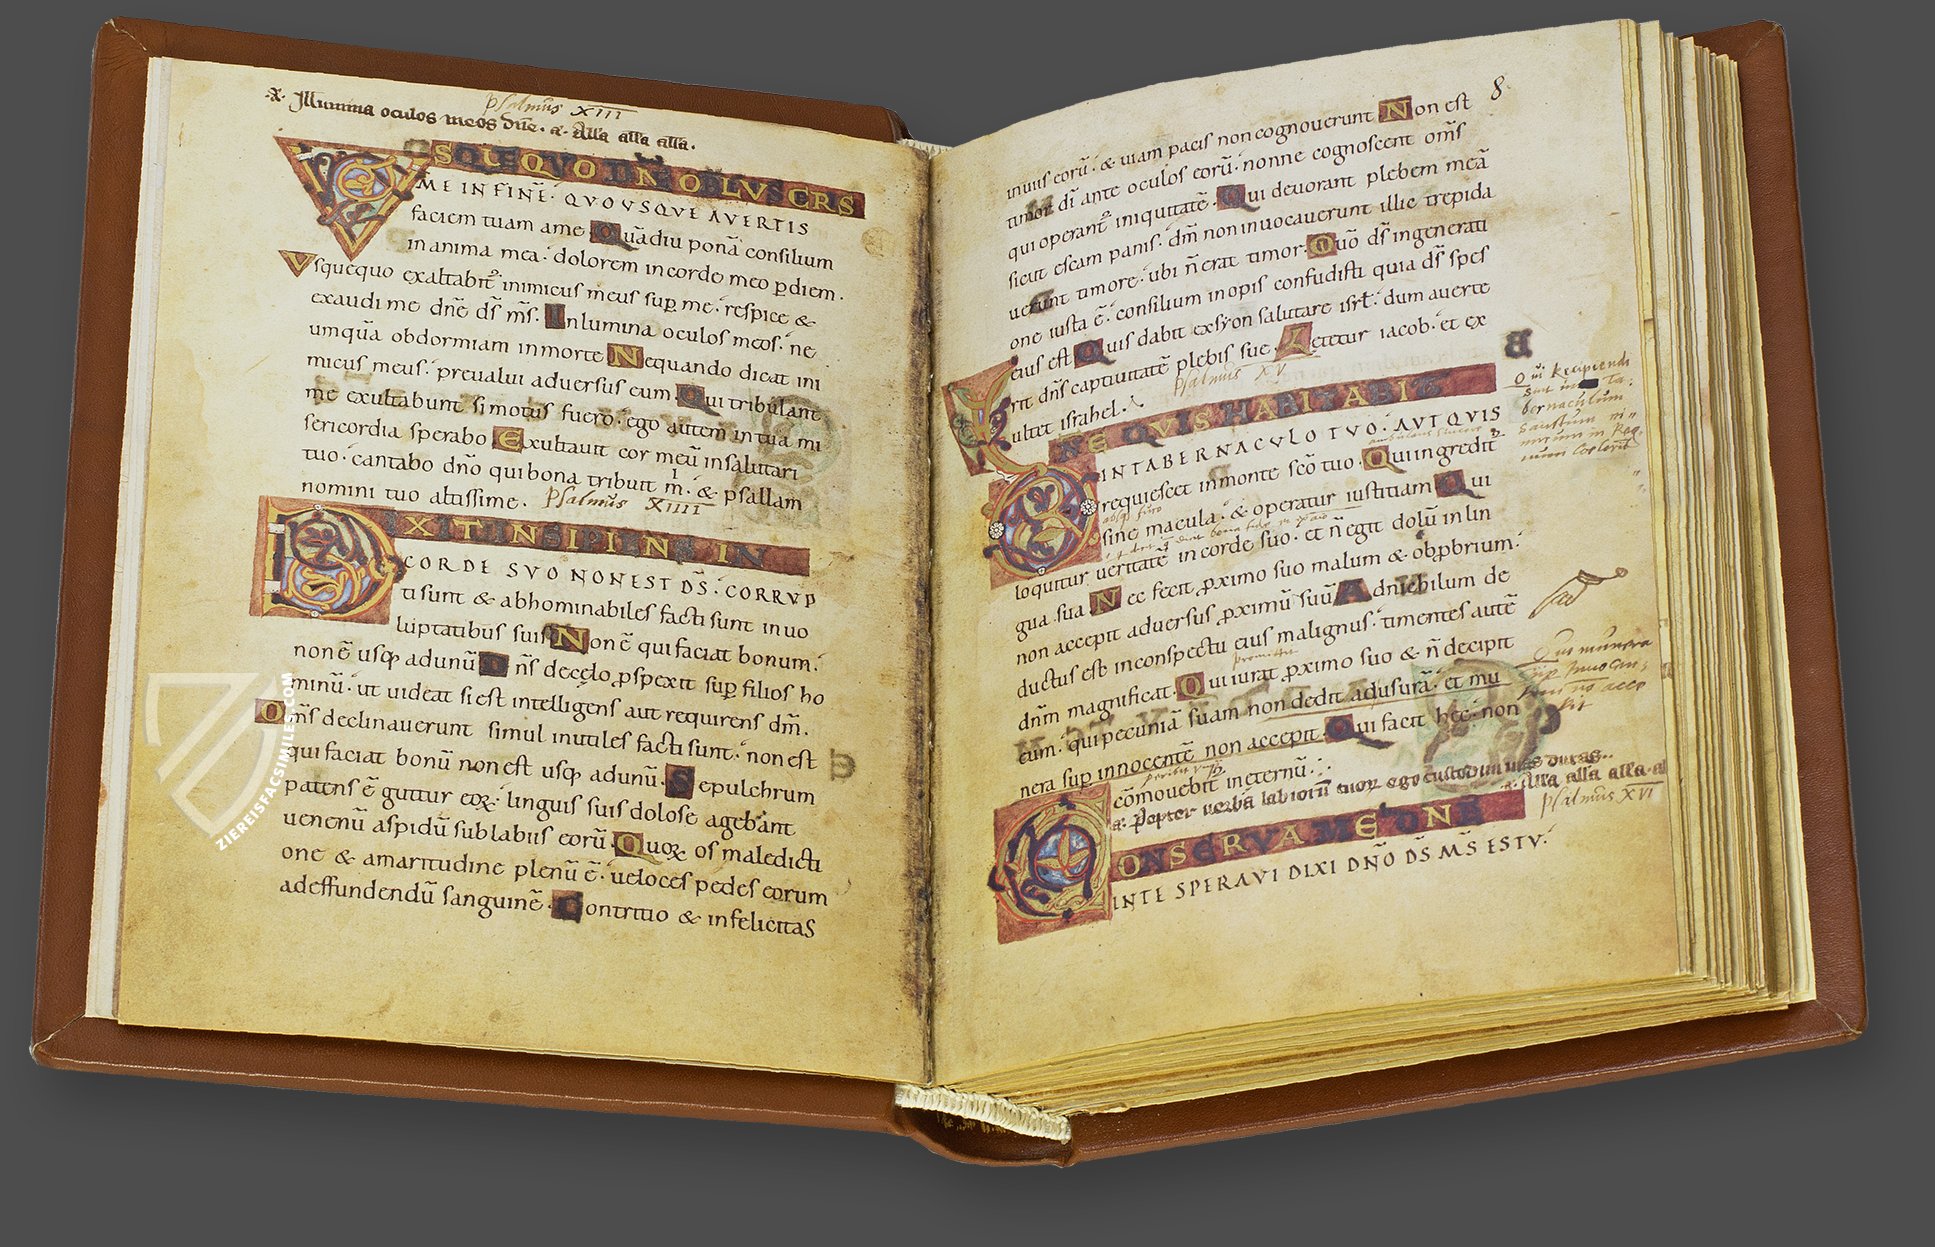 Psalmus XIII
Illumina oculos meos dñe. a. Alla alla alla.
VSQUEQVO DNE OBLVISCERIS
ME IN FINE͂· QVOVSQVE AVERTIS
faciem tuam a me Quãdiu ponã consilium
in anima mea· dolorem in corde meo ꝑ diem·
Vsquequo exaltabit᷒ inimicus meus sup̱ me· respice &
exaudi me dñe ds̄ m̄s. Inlumina oculos meos· ne
umquã obdormiam in morte Nequando dicat ini
micus meus· preualui aduersus eum Qui tribulant
me exultabunt si motus fuero· ego autem in tua mi
sericordia sperabo Exultauit cor meũ in salutari
tuo· cantabo dño qui bona tribuit m̍· & psallam
nomini tuo altissime. Psalmus XIIII
DIXIT INSIPIENS IN
CORDE SVO NON EST DS̄· CORRVP
ti sunt & abhominabiles facti sunt in uo
luptatibus suis Non ē qui faciat bonum·
non ē usq; ad unũ Dñs de cęlo ꝓspexit sup̱ filios ho
minũ· ut uideat si est intelligens aut requirens dm̄.
Om̄s declinauerunt simul inutiles facti sunt· non est
qui faciat bonũ non est usq; ad unũ· Sepulchrum
patens ē guttur eoꝝ· linguis suis dolose agebant
uenenũ aspidũ sub labiis eorũ Quoꝝ os maledicti
one & amaritudine plenũ ē· ueloces pedes eorum
ad effundendũ sanguinē· Contritio & infelicitas
8·
in uiis eorũ· & uiam pacis non cognouerunt Non est
timor dī ante oculos eorũ· nonne cognoscent om̄s
qui operant᷒ iniquitatē· Qui deuorant plebem meã
sicut escam panis· dm̄ non inuocauerunt illic trepida
uerunt timore· ubi ñ erat timor· Quō ds̄ in generati
one iusta ē· consilium inopis confudisti quia ds̄ spes
eius est Quis dabit ex syon salutare isrł· dum auerte
rit dñs captiuitatē plebis sue Letetur iacob· et ex
ultet israhel. Psalmus XV
DNE QVIS HABITABIT
IN TABERNACVLO TVO· AVT QVIS
requiescet in monte scō tuo· Qui ingredit᷒
sine macula· & operatur iustitiam Qui
loquitur ueritatē in corde suo· et ñ egit dolũ in lin
gua sua Nec fecit ꝓximo suo malum & obꝓbrium·
non accepit aduersus ꝓximũ suũ Ad nichilum de
ductus est in conspectu eius malignus· timentes autē
dñm magnificat· Qui iurat ꝓximo suo & ñ decipit
eum· qui pecuniã suam non dedit ad usurã· et mu
nera sup̱ innocentē non accepit· Qui facit hec· non
cōmouebit in eternũ·
a. Propter uerba labiorũ tuoꝝ ego custodiui uias duras..
a. Alla alla alla·al
Psalmus XVI
CONSERVA ME DNE
IN TE SPERAVI DIXI DÑO DS̄ M̄S ES TV·
Qui recipiendi
sunt in Ta:
bernaculum
Sanctum
Qui munera
ZIEREISFACSIMILES.COM